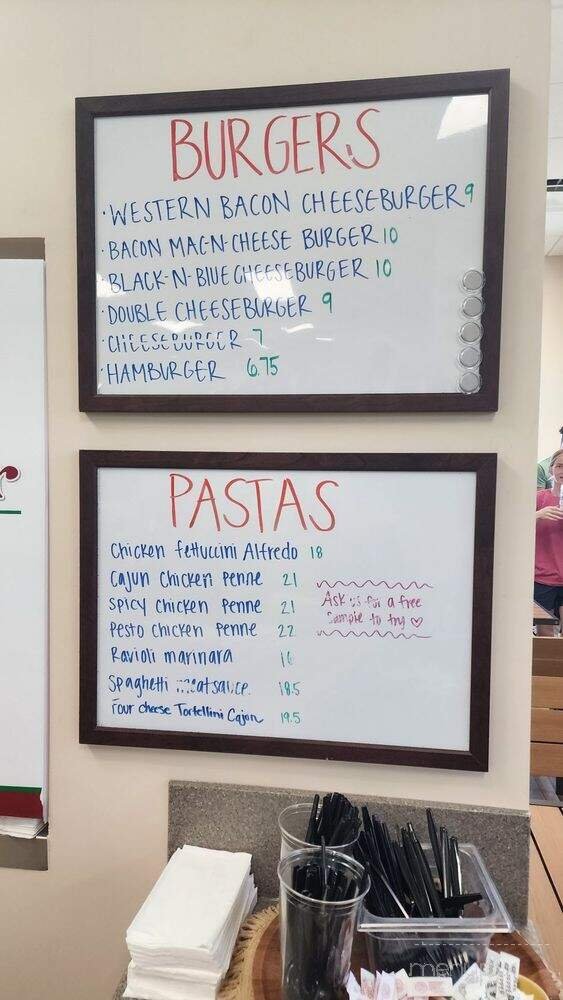 BURGERS
·WESTERN BACON CHEESEBURGER 9
·BACON MAC-N-CHEESE BURGER 10
·BLACK-N-BLUE CHEESEBURGER 10
·DOUBLE CHEESEBURGER 9
·CHEESEBURGER 7
·HAMBURGER 6.75
PASTAS
Chicken fettuccini Alfredo 18
Cajun Chicken Penne 21
Spicy Chicken Penne 21
Pesto Chicken Penne 22
Ravioli marinara 16
Spaghetti meatsauce 18.5
Four cheese Tortellini Cajun 19.5
Ask us for a free
Sample to try ♡